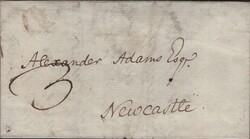 Alexander Adams Esqr.
3
Newcastle